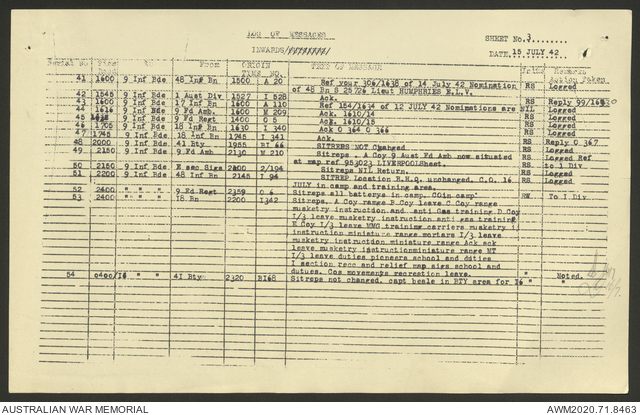 LOG OF MESSAGES
SHEET No. 3
INWARDS/
DATE. 15 JULY 42
Serial No Time To From ORIGIN TIME NO. TEXT OF MESSAGE Remarks Action Taken
41 1600 9 Inf Bde 48 Inf Bn 1500 A 20 Ref your 306/1638 of 14 July Nomination RS Logged
of 48 Bn S 25726 Lieut HUMPHRIES R.L.V.
42 1545 9 Inf Bde 1 Aust Div 1527 I 528 Ack. RS Logged
43 1600 9 Inf Bde 17 Inf Bn 1600 A 110 Ref 154/1634 of 12 JULY 42 Nominations are NIL RS Reply 99/16
44 1616 9 Inf Bde 9 Fd Amb. 1600 M 209 Ack. 1610/14 RS Logged
45 9 Inf Bde 9 Fd Regt 1400 O 5 Ack. 1610/15 RS Logged
46 1705 9 Inf Bde 18 Inf Bn 1630 I 340 Ack O 364 O 366 RS Logged
47 1745 9 Inf Bde 18 Inf Bn 1745 I 341 Ack. RS Logged
48 2000 9 Inf Bde 41 Bty 1955 BI 66 SITREPS NOT Changed RS Reply O 367
49 2150 9 Inf Bde 9 Fd Amb 2130 M 210 Sitreps. A Coy 9 Aust Fd Amb now situated RS Logged Ref
at map ref 953023 LIVERPOOLSheet. to 1 Div
50 2150 9 Inf Bde E sec Sigs 2100 2/194 Sitreps NIL Return. RS Logged
51 2200 9 Inf Bde 48 Inf Bn 2145 I 94 SITREP Location B.H.Q. unchanged. C.O. 16 RS Logged
JULY in camp and training area.
52 2400 " " " 9 Fd Regt 2359 O 6 Sitreps all batterys in camp. COin camp
53 2400 " " " 18 Bn 2200 I342 Sitreps. A Coy range B Coy leave C Coy range RW To I Div
musketry instruction and anti Gas training D Coy
I/3 leave musketry instruction anti gas training
E Coy I/3 leave MMG training carriers musketry i
instruction miniature range mortars I/3 leave
musketry instruction miniature range Ack ack
leave musketry instructionminiature range MT
I/3 leave duties pioneers school and duties
I section recc and relief map sigs school and
duties. Cos movements recreation leave.
54 0400/16 " " " 41 Bty 2320 BI68 Sitreps not changed. capt beale in BTY area for 16 " Noted.
AUSTRALIAN WAR MEMORIAL
AWM2020.71.8463